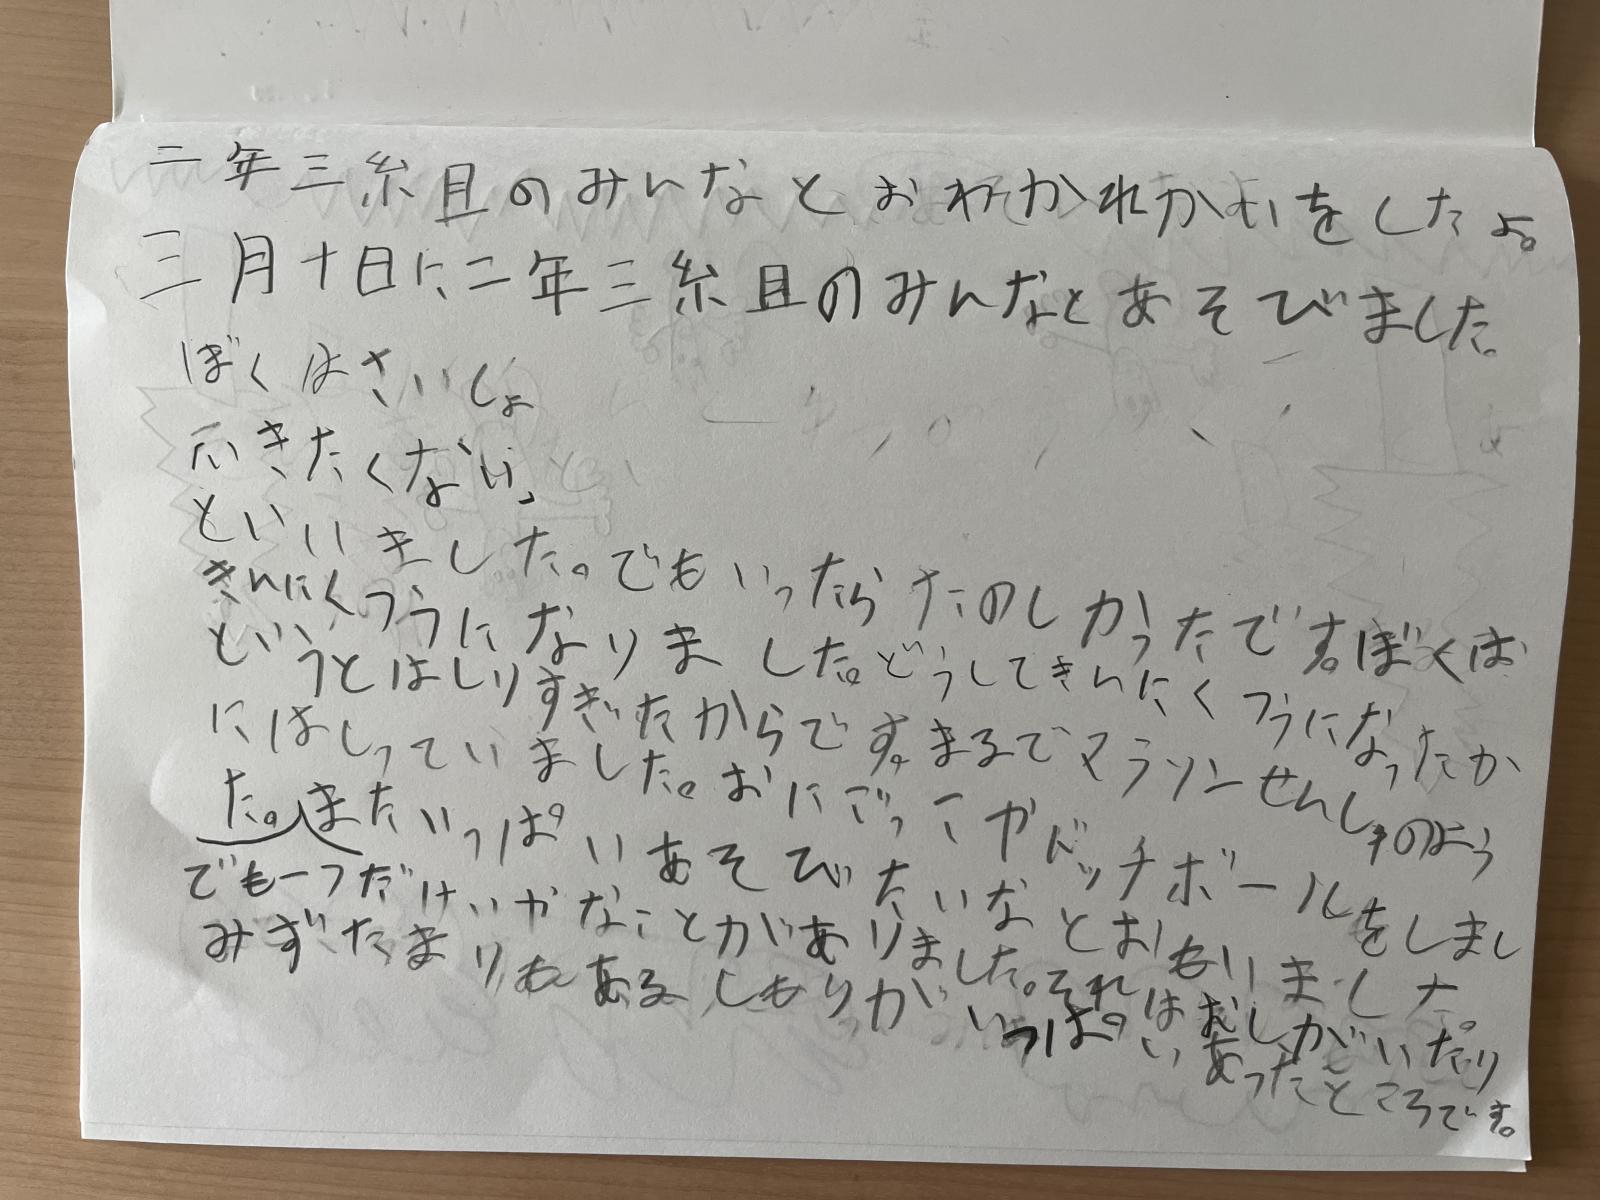 二年三組のみんなとおわかれかいをしたよ。
三月十日に二年三組のみんなとあそびました。
ぼくはさいしょ
「いきたくない」
といいました。でもいったらたのしかったです。ぼくは
きんにくつうになりました。どうしてきんにくつうになったか
というとはしりすぎたからです。まるでマラソンせんしゅのよう
にはしっていました。おにごっこやドッチボールをしまし
た。またいっぱいあそびたいなとおもいました。
でも一つだけいやなことがありました。それはむしがいたり
みずたまりもあるしもりがいっぱいあったところです。